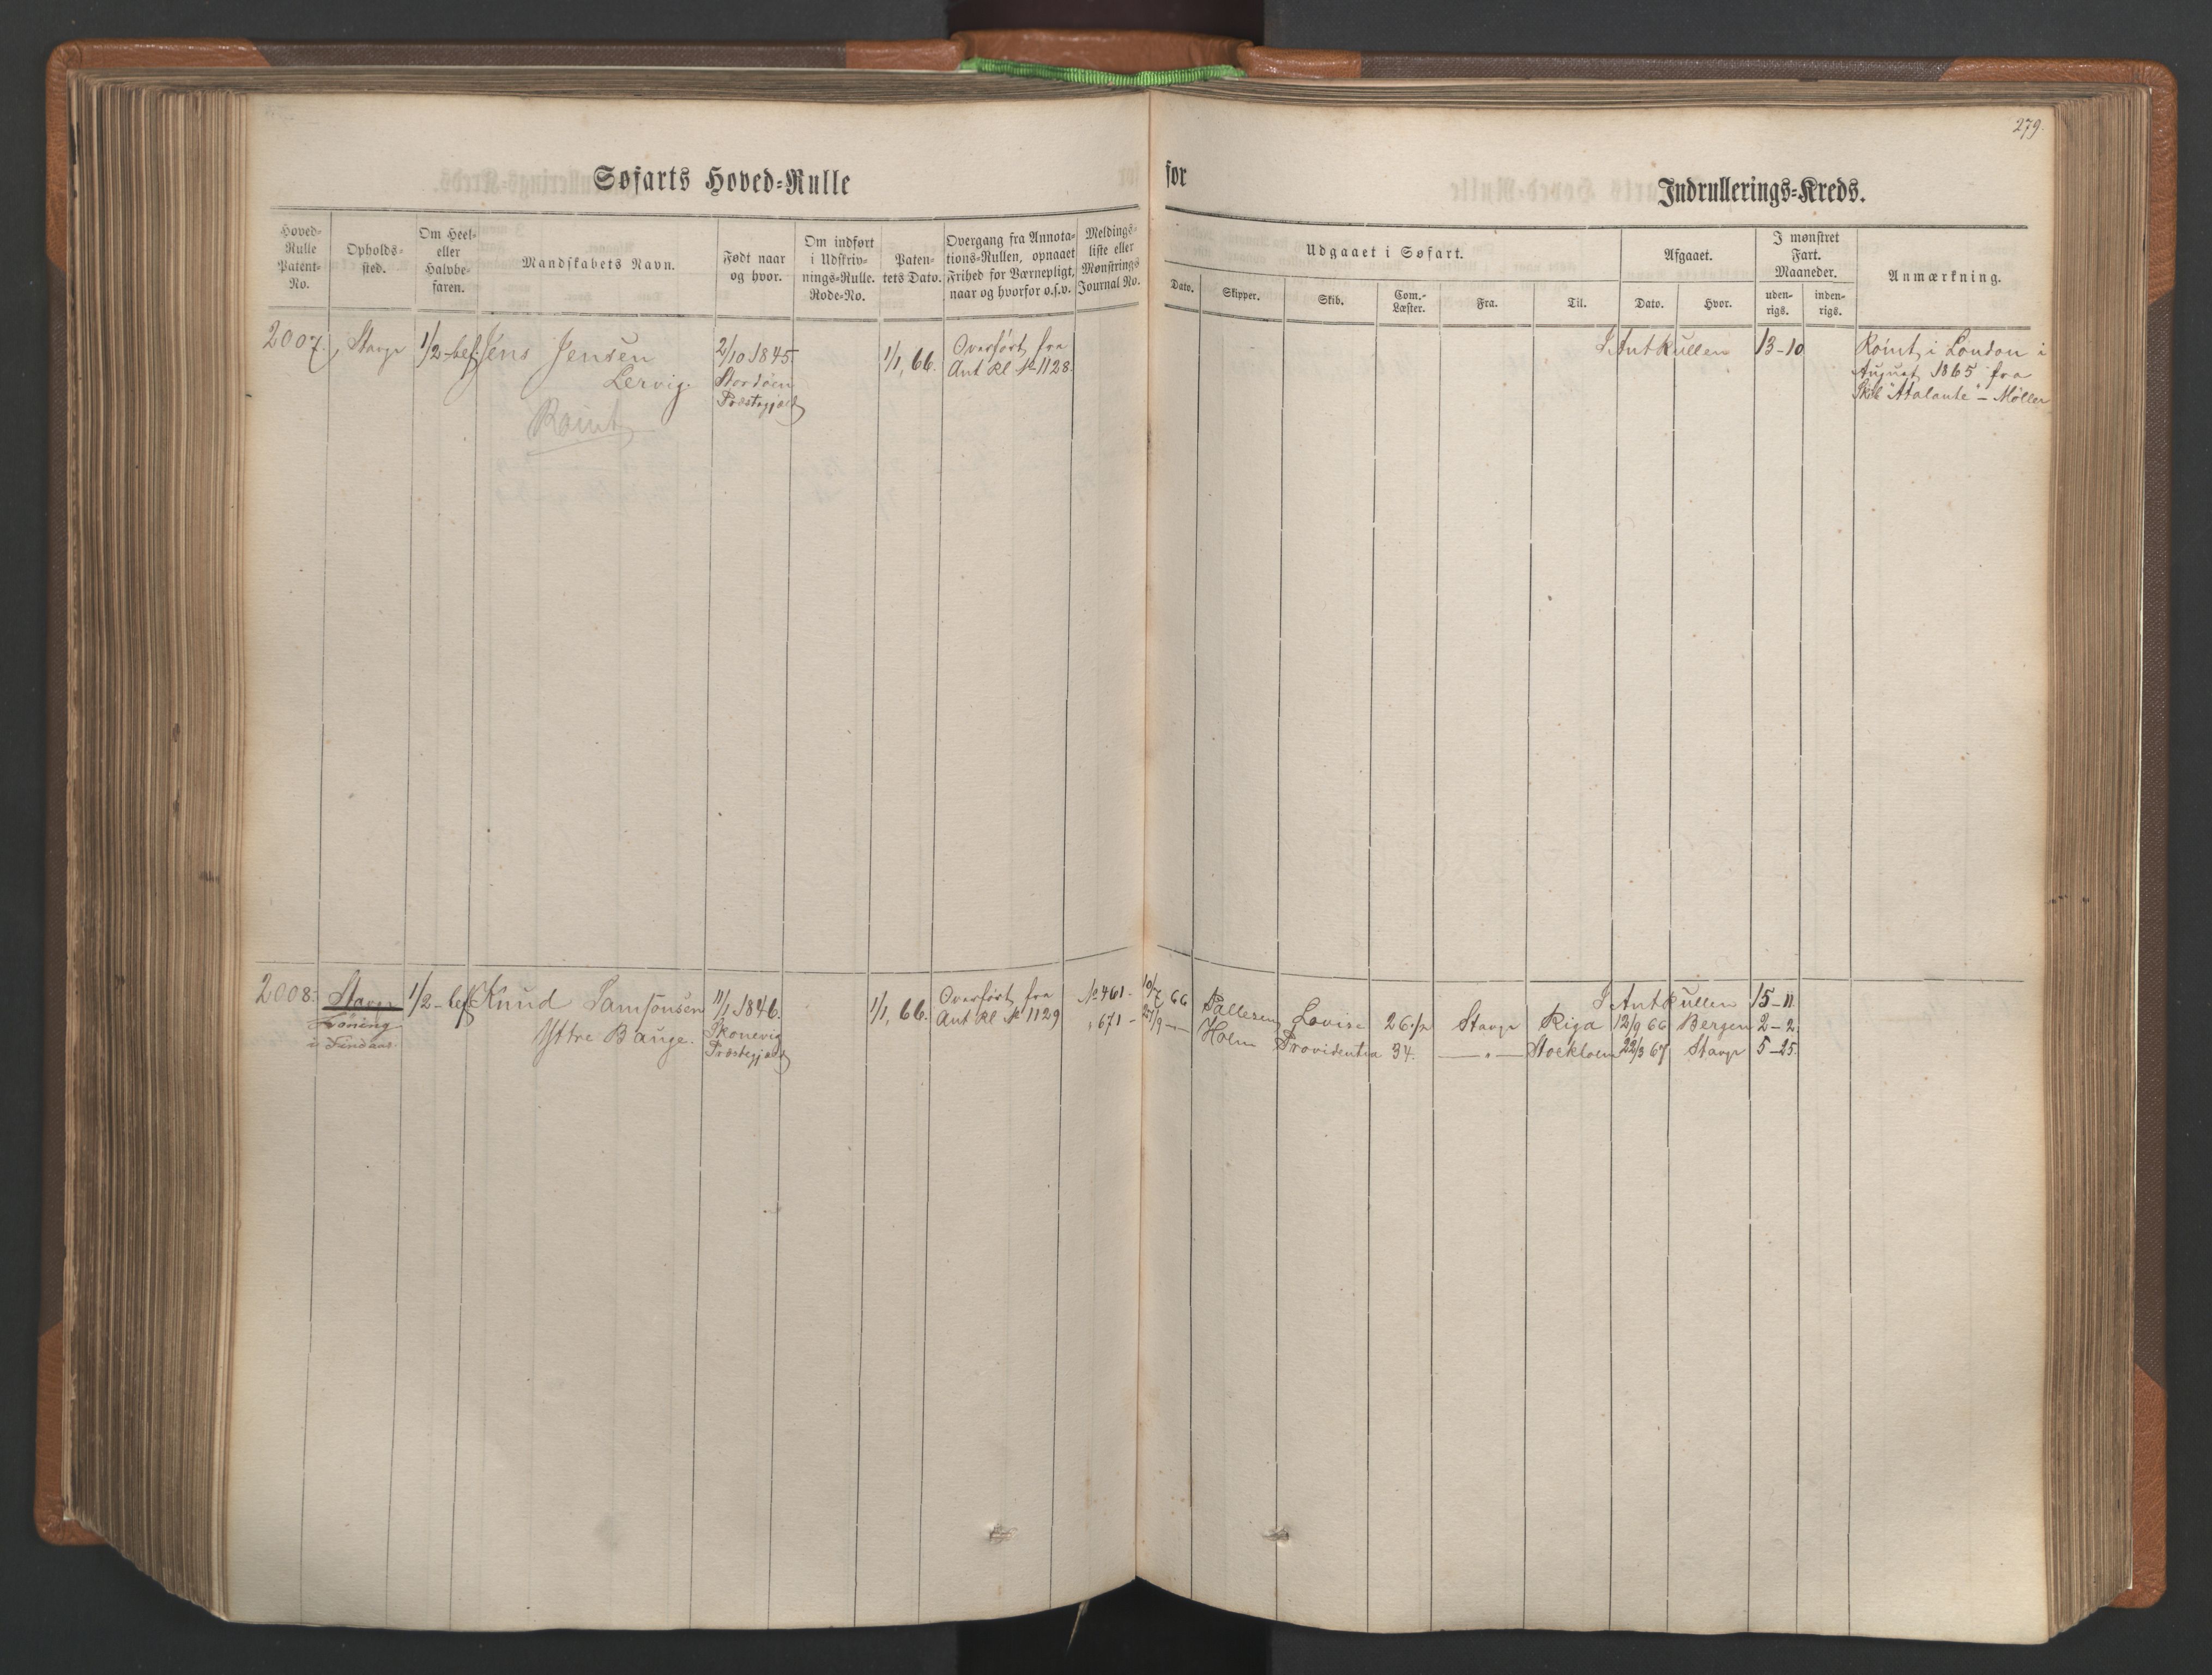 279.
Søfarts Hoved-Rulle
for
Indrullerings-Kreds.
Hoved-Rulle Patent-No.
Opholds-sted.
Om Heel- eller Halvbe-faren.
Mandskabets Navn.
Født naar og hvor.
Om indført i Udskriv-nings-Rulle. Rode-No.
Paten-tets Dato.
Overgang fra Annota-tions-Rullen, opnaaet Frihed for Værnepligt, naar og hvorfor o.s.v.
Meldings-liste eller Mønstrings Journal No.
Udgaaet i Søfart.
Dato.
Skipper.
Skib.
Com.-Læster.
Fra.
Til.
Afgaaet.
Dato.
Hvor.
I mønstret Fart. Maaneder.
uden-rigs.
inden-rigs.
Anmærkning.
2007. Stavgr 1/2-bef. Jens Jensen 2/10 1845 1/1, 66. Overført fra
Lervig. Stordöen Ant Rl No 1128.
Præstegjæld
Römt
I Ant Rullen 13-10
Römt i London i
August 1865 fra
Skib "Atalante" - Möller
2008. Stavgr 1/2-bef Knud Samsonsen 11/1 1846. 1/1, 66. Overført fra No 461.
i Findaas. Yttre Bauge. Skonevig Ant Rl No 1129 " 671 -
Præstegjæld
I Ant Rullen 15-11.
10/7 66 Pallesen Lovise 26 1/2 Stavgr Riga 12/9 66 Bergen 2-2.
Holm Providentia 34. — " — Stockholm 22/3 67 Stavgr 5-25.